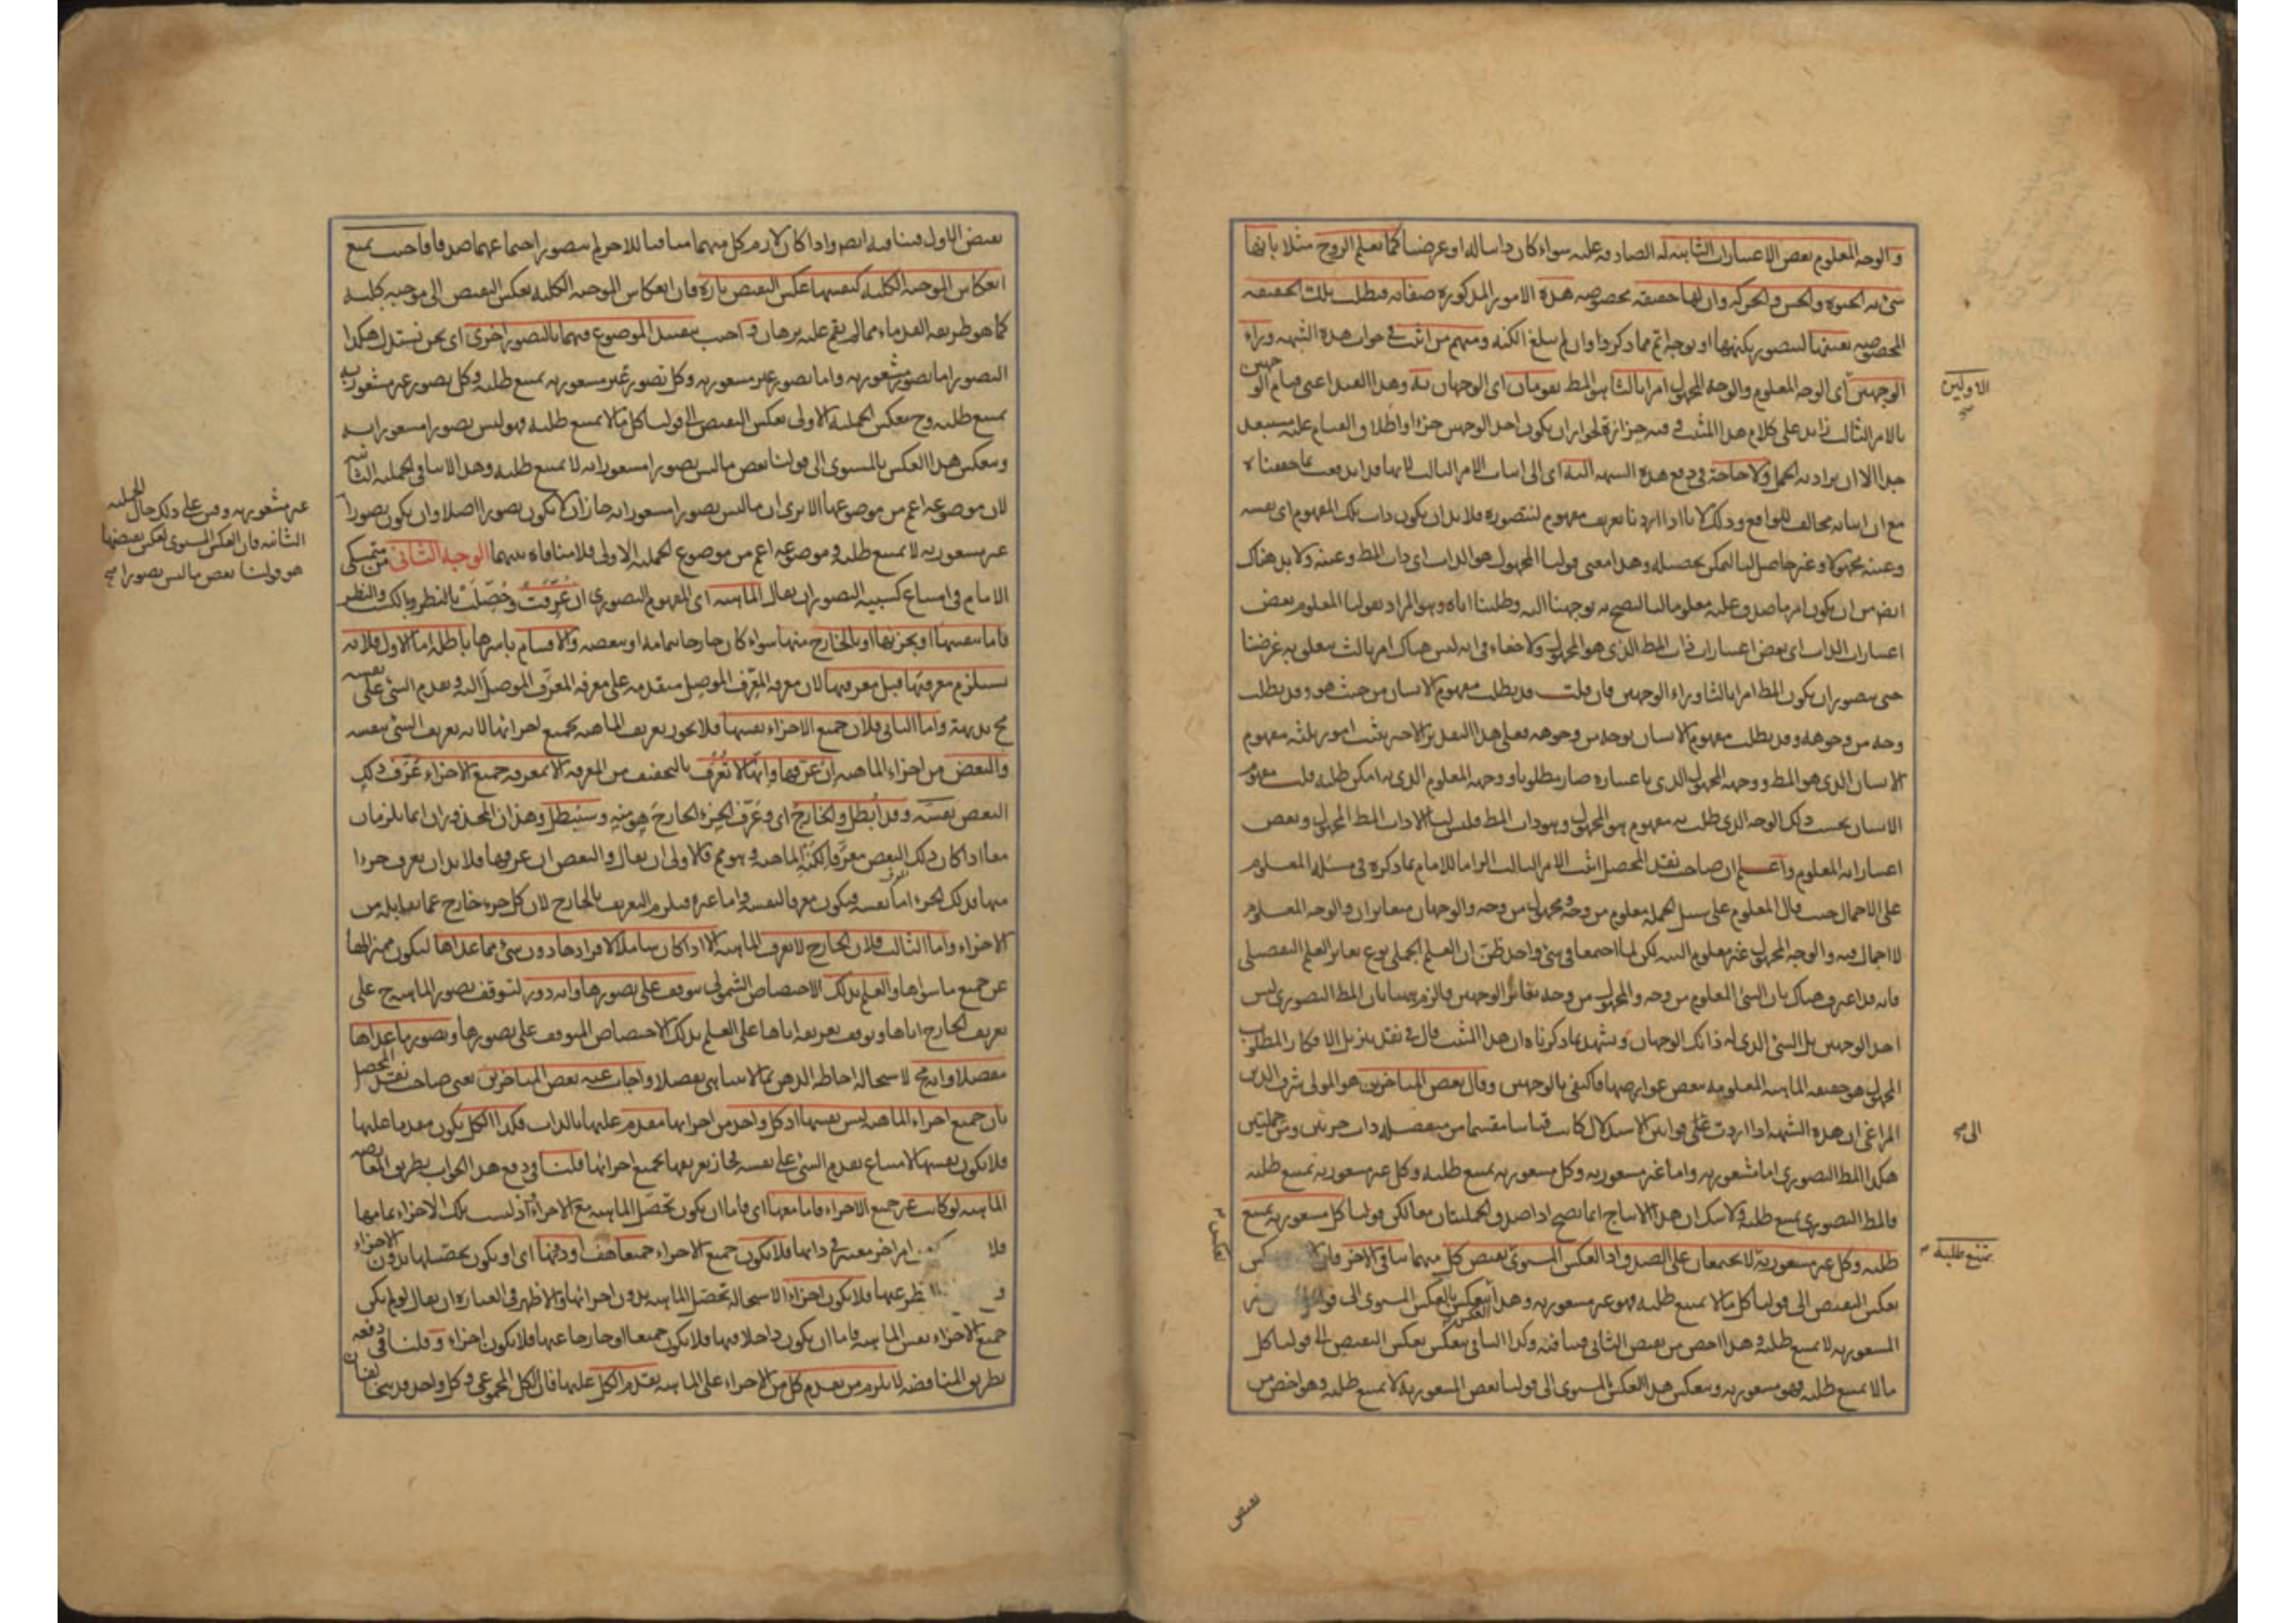 والوجه المعلوم بعض الاعتبارات الثابتة له الصادقة عليه سواء كان ذاتيا له او عرضيا كما نعلم الروح مثلا بانها
شئ به الحيوة والحس والحركة وان لها حقيقة مخصوصة هذه الامور المذكورة صفاته فنطلب تلك الحقيقة
المخصوصة بعينها لنتصور بكنهها او بوجه اتم مما ذكر وان لم يبلغ الكنه ومنهم من اثبت في جواب هذه الشبهة وراء
الوجهين اى الوجه المعلوم والوجه المجهول امرا ثالثا هو المط يقومان اى الوجهان به وهذا القيد اعنى قيام الوجهين
بالامر الثالث زائد على كلام هذا المثبت وفيه حزازة لجواز ان يكون احد الوجهين جزءا واطلاق القيام عليه مستبعد
جدا الا ان يراد به الحمل ولا حاجة في دفع هذه الشبهة اليه اى الى اثبات الامر الثالث لانها قد اندفعت بما حققناه
مع ان اثباته مخالف للواقع وذلك لانا اذا اردنا تعريف مفهوم لنتصوره فلا بد ان يكون ذات تلك المفهوم اى نفسه
وعينه مجهولا وغير حاصل لنا لتمكن تحصيله وهذا معنى قولنا المجهول هو الذات اى ذات المط وعينه ولا بد هناك
ايض من ان يكون امر ما صدق عليه معلوما لنا لتصح به توجهنا اليه وطلبنا اياه وهو المراد بقولنا المعلوم بعض
اعتبارات الذات اى بعض اعتبارات ذات المط الذى هو المجهول ولا خفاء في انه ليس هناك امر ثالث يتعلق به غرضنا
حتى يتصور ان يكون المط امرا ثالثا وراء الوجهين فان قلت قد يطلب مفهوم الانسان من حيث هو وقد يطلب
وجه من وجوهه وقد يطلب مفهوم الانسان بوجه من وجوهه فعلى هذا التقدير الاخير يثبت امور ثلثة مفهوم
الانسان الذى هو المط ووجهه المجهول الذى باعتباره صار مطلوبا ووجهه المعلوم الذى به امكن طلبه قلت مفهوم
الانسان بحسب ذلك الوجه الذى طلب به مفهوم هو المجهول وهو ذات المط فليس لنا الا ذات المط المجهول وبعض
اعتباراته المعلوم واعلم ان صاحب نقد المحصل اثبت الامر الثالث الزاما للامام بما ذكره في مسئلة المعلوم
على الاجمال حيث قال المعلوم على سبيل الجملة معلوم من وجه ومجهول من وجه والوجهان متغايران والوجه المعلوم
لا اجمال فيه والوجه المجهول غير معلوم البتة لكن لما اجتمعا في شئ واحد ظن ان العلم الجملى نوع يغاير العلم التفصيلى
فانه قد اعترف هناك بان الشئ المعلوم من وجه والمجهول من وجه يغاير الوجهين فالزم ههنا بان المط التصورى ليس
احد الوجهين بل الشئ الذى له ذانك الوجهان ويشهد بما ذكرناه ان هذا المثبت قال في نقد تنزيل الافكار المطلوب
المجهول هو حقيقة الماهية المعلومة ببعض عوارضها فاكتفى بالوجهين وقال بعض المتاخرين هو المولى شرف الدين
المراغى ان هذه الشبهة اذا اردت على قوانين الاستدلال كانت قياسا مقسما من منفصلة ذات جزئين ومن حمليتين
هكذا المط التصورى اما مشعور به واما غير مشعور به وكل مشعور به يمتنع طلبه وكل غير مشعور به يمتنع طلبه
فالمط التصورى يمتنع طلبه ولا شك ان هذا الانتاج انما يصح اذا صدق الحمليتان معا لكن قولنا كل مشعور به يمتنع
طلبه وكل غير مشعور به لا يجتمعان على الصدق اذ العكس المستوى لنقيض كل منهما ينافى الاخر فان
بعكس النقيض الى قولنا كل ما لا يمتنع طلبه فهو غير مشعور به وهذا ينعكس بالعكس المستوى الى قولنا
المشعور به لا يمتنع طلبه وهذا اخص من نقيض الثانى فينافيه وكذا الثانى ينعكس بعكس النقيض الى قولنا كل
ما لا يمتنع طلبه فهو مشعور به وينعكس هذا العكس المستوى الى قولنا بعض المشعور به لا يمتنع طلبه وهو اخص من
الاولين صح
الى صح
يمتنع طلبه
نقيض
نقيض الاول فينافيه ايض واذا كان لازم كل منهما منافيا للاخر لم يتصور اجتماعهما صدقا فاجيب بمنع
انعكاس الموجبة الكلية كنفسها عكس النقيض تارة فان انعكاس الموجبة الكلية بعكس النقيض الى موجبة كلية
كما هو طريقة القدماء مما لم يقم عليه برهان واجيب بتقييد الموضوع فيهما بالتصور اخرى اى نحن نستدل هكذا
التصور اما تصور مشعور به واما تصور غير مشعور به وكل تصور غير مشعور به يمتنع طلبه وكل تصور غير مشعور به
يمتنع طلبه وح ينعكس الحملية الاولى بعكس النقيض الى قولنا كل ما لا يمتنع طلبه فهو ليس تصورا مشعورا به
وينعكس هذا العكس بالمستوى الى قولنا بعض ما ليس تصورا مشعورا به لا يمتنع طلبه وهذا لا ينافى الحملية الثانية
لان موضوعه اعم من موضوعها الا ترى ان ما ليس تصورا مشعورا به جاز ان لا يكون تصورا اصلا وان يكون تصورا
غير مشعور به لا يمتنع طلبه وموضوعه اعم من موضوع الحملية الاولى فلا منافاة بينهما الوجه الثانى من متمسكى
الامام في امتناع كسبية التصور ان يقال الماهية اى المفهوم التصورى ان عرفت وحصلت بالنظر وبالكسب والنظر
فاما بنفسها او بجزئها او بالخارج منها سواء كان خارجا بتمامه او ببعضه والاقسام باسرها باطلة اما الاول فلانه
يستلزم معرفتها قبل معرفتها لان معرفة المعرف الموصل متقدمة على معرفة المعرف الموصل اليه وتقدم الشئ على نفسه
مح بديهة واما الثانى فلان جميع الاجزاء نفسها فلا يجوز تعريف الماهية بجميع اجزائها لانه تعريف الشئ بنفسه
والبعض من اجزاء الماهية ان عرفها وانها لا تعرف بالتحقيق من المعرفة الا بمعرفة جميع الاجزاء عرف ذلك
البعض نفسه وقد ابطل والخارج اى وعرف الجزء الخارج هو منه وسيبطل وهذان المحذوران انما يلزمان
معا اذا كان ذلك البعض معرفا لكنه الماهية وهو مم فالاولى ان يقال والبعض ان عرفها فلا بد ان يعرف جزءا
منها فذلك الجزء اما نفسه فيكون معرفا لنفسه واما غيره فيلزم التعريف بالخارج لان كل جزء خارج عما يقابله من
الاجزاء واما الثالث فلان الخارج لا يعرف الماهية الا اذا كان شاملا لافرادها دون شئ مما عداها ليكون مميزا لها
عن جميع ما سواها والعلم بذلك الاختصاص الشمولى يتوقف على تصورها وانه دور لتوقف تصور الماهية ح على
تعريف الخارج اياها وتوقف تعريفه اياها على العلم بذلك الاختصاص المتوقف على تصورها وتصور ما عداها
مفصلا وانه مح لاستحالة احاطة الذهن بما لا يتناهى تفصيلا واجاب عنه بعض المتاخرين يعنى صاحب نقد المحصل
بان جميع اجزاء الماهية ليس نفسها اذ كل واحد من اجزائها مقدم عليها بالذات فكذا الكل يكون مقدما عليها
فلا يكون نفسها لامتناع تقدم الشئ على نفسه فجاز تعريفها بجميع اجزائها قلنا في دفع هذا الجواب بطريق المعارضة
الماهية لو كانت غير جميع الاجزاء فاما معها اى فاما ان يكون تحصل الماهية مع الاجزاء اذ ليست تلك الاجزاء تمامها
فلا امر اخر معتبر في ذاتها فلا يكون جميع الاجزاء جميعا هف او دونها اى او يكون تحصلها بدون الاجزاء
عنها فلا يكون اجزاء لاستحالة تحصل الماهية بدون اجزائها والاظهر في العبارة ان يقال لو لم يكن
جميع الاجزاء نفس الماهية فاما ان يكون داخلا فيها فلا يكون جميعا او خارجا عنها فلا يكون اجزاء وقلنا في دفعه
بطريق المناقضة لا يلزم من تقدم كل من الاجزاء على الماهية تقدم الكل عليها فان الكل المجموعى وكل واحد قد يتخالفان
غير مشعور به وقس على ذلك حال الحملية
الثانية فان العكس المستوى لعكس نقيضها
هو قولنا بعض ما ليس تصورا صح